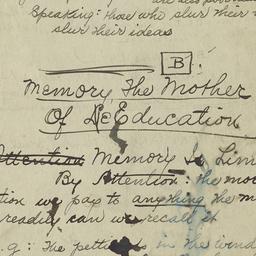 are also poor
Speaking: those who slur their
slur their ideas
B.
Memory The Mother
Of Education
Attention Memory Is Lim
By Attention: the mo
tion we pay to anything the m
readily can we recall it
g: The petti in the wind